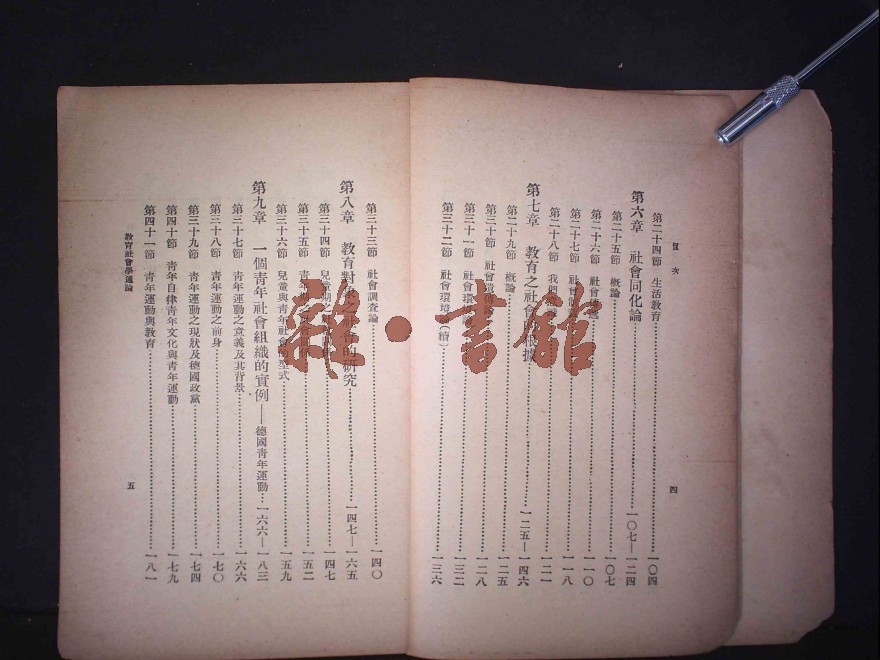 目次
第二十四節 生活教育 一〇四
第六章 社會同化論 一〇七—一二四
第二十五節 概論 一〇七
第二十六節 社會 一一〇
第二十七節 社會 一一八
第二十八節 我們 一二一
第七章 教育之社會 根據 一二五—一四六
第二十九節 概論 一二五
第三十節 社會遺傳 一二八
第三十一節 社會環境 一三二
第三十二節 社會環境 (續) 一三六
四
第三十三節 社會調查論 一四〇
第八章 教育對象之社會的研究 一四七—一六五
第三十四節 兒童期之 一四七
第三十五節 青年 一五二
第三十六節 兒童與青年社會的型式 一五九
第九章 一個青年社會組織的實例——德國青年運動 一六六—一八三
第三十七節 青年運動之意義及其背景 一六六
第三十八節 青年運動之前身 一七〇
第三十九節 青年運動之現狀及德國政黨 一七四
第四十節 青年自律青年文化與青年運動 一七九
第四十一節 青年運動與教育 一八一
教育社會學通論
五
雜·書館